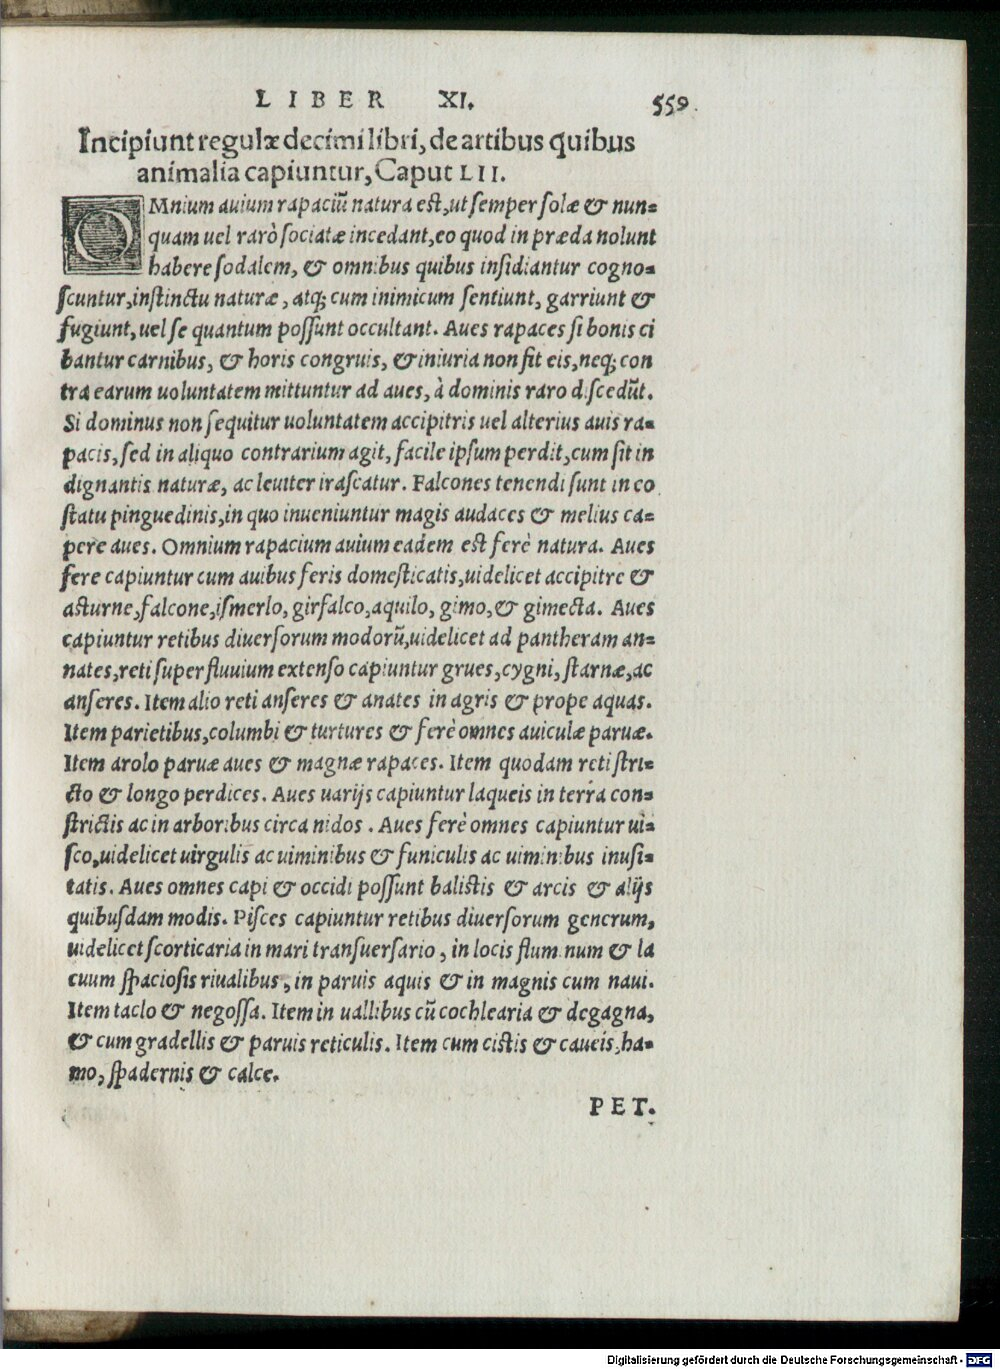 LIBER XI. 559.
Incipiunt regulæ decimi libri, de artibus quibus
animalia capiuntur, Caput LII.
OMnium auium rapaciũ natura est, ut semper solæ & nun=
quam uel rarò sociatæ incedant, eo quod in præda nolunt
habere sodalem, & omnibus quibus insidiantur cogno=
scuntur, instinctu naturæ, atq; cum inimicum sentiunt, garriunt &
fugiunt, uel se quantum possunt occultant. Aues rapaces si bonis ci
bantur carnibus, & horis congruis, & iniuria non fit eis, neq; con
tra earum uoluntatem mittuntur ad aues, à dominis raro discedũt.
Si dominus non sequitur uoluntatem accipitris uel alterius auis ra=
pacis, sed in aliquo contrarium agit, facile ipsum perdit, cum sit in
dignantis naturæ, ac leuiter irascatur. Falcones tenendi sunt in eo
statu pinguedinis, in quo inueniuntur magis audaces & melius ca=
pere aues. Omnium rapacium auium eadem est ferè natura. Aues
fere capiuntur cum auibus feris domesticatis, uidelicet accipitre &
asturne, falcone, ismerlo, girfalco, aquilo, gimo, & gimecta. Aues
capiuntur retibus diuersorum modorũ, uidelicet ad pantheram an=
nates, reti super fluuium extenso capiuntur grues, cygni, starnæ, ac
anseres. Item alio reti anseres & anates in agris & prope aquas.
Item parietibus, columbi & turtures & ferè omnes auiculæ paruæ.
Item arolo paruæ aues & magnæ rapaces. Item quodam reti stri=
cto & longo perdices. Aues uarijs capiuntur laqueis in terra con=
strictis ac in arboribus circa nidos. Aues ferè omnes capiuntur ui=
sco, uidelicet uirgulis ac uiminibus & funiculis ac uiminibus inusi=
tatis. Aues omnes capi & occidi possunt balistis & arcis & alijs
quibusdam modis. Pisces capiuntur retibus diuersorum generum,
uidelicet scorticaria in mari transuersario, in locis fluminum & la
cuum spaciosis riualibus, in paruis aquis & in magnis cum naui.
Item taclo & negossa. Item in uallibus cũ cochlearia & degagna,
& cum gradellis & paruis reticulis. Item cum cistis & caueis, ha=
mo, spadernis & calce.
PET.
Digitalisierung gefördert durch die Deutsche Forschungsgemeinschaft - DFG